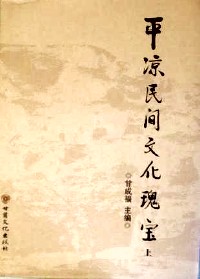 平凉民间文化瑰宝
上
◎甘成福 主编◎
甘肃文化出版社